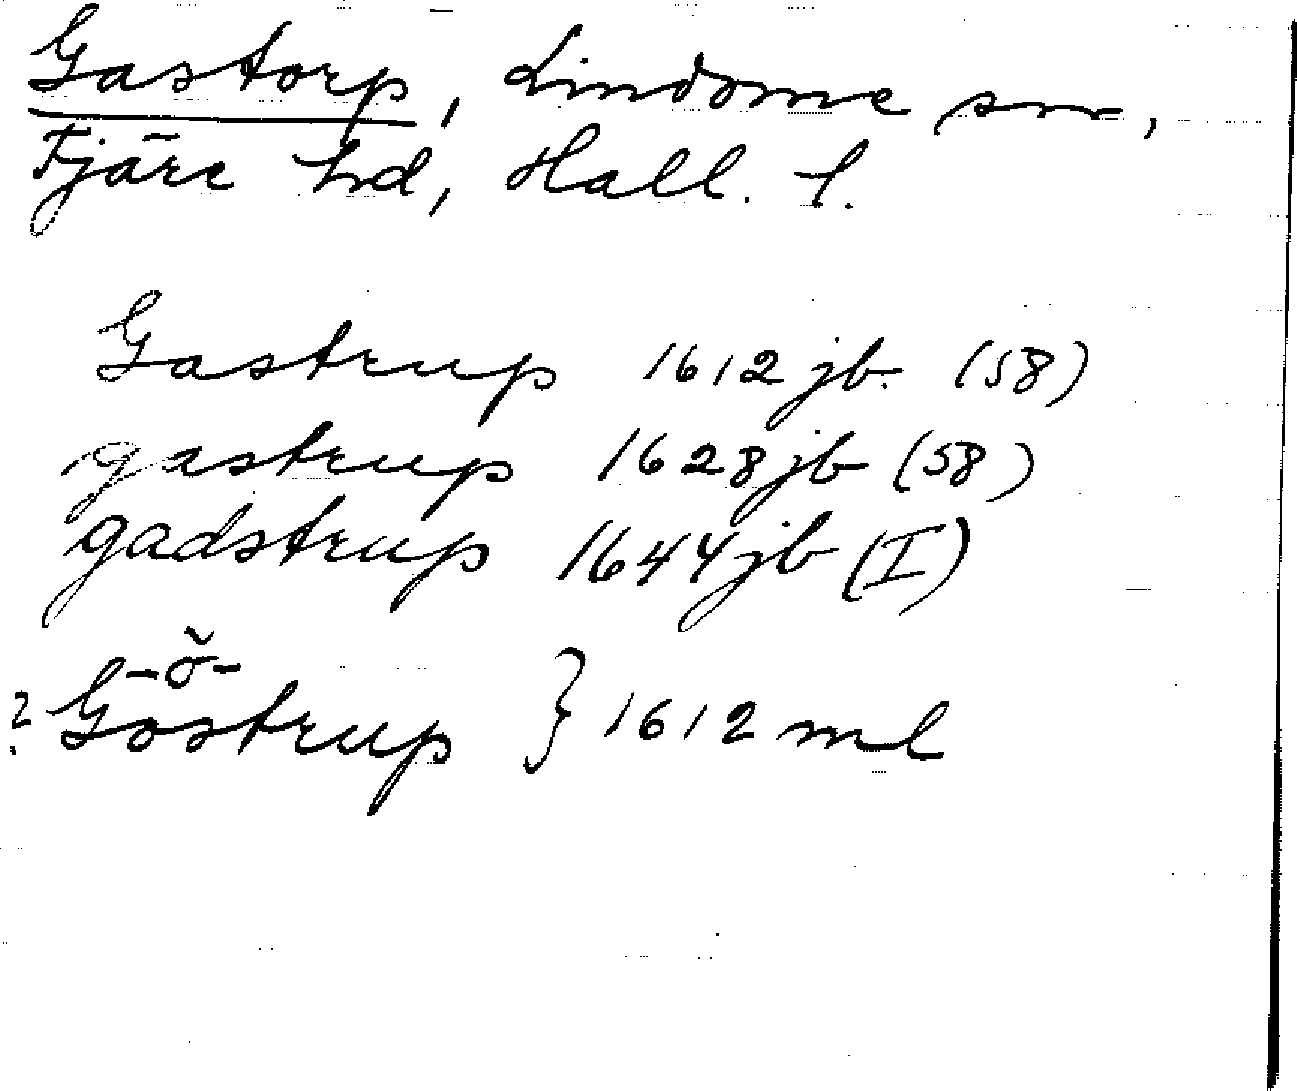 Gastorp, Lindome sn,
Fjäre hd, Hall. l.
Gastrup 1612 jb. (58)
gastrup 1628 jb (58)
gadstrup 1644 jb (I)
-ŏ-
? Göstrup } 1612 ml